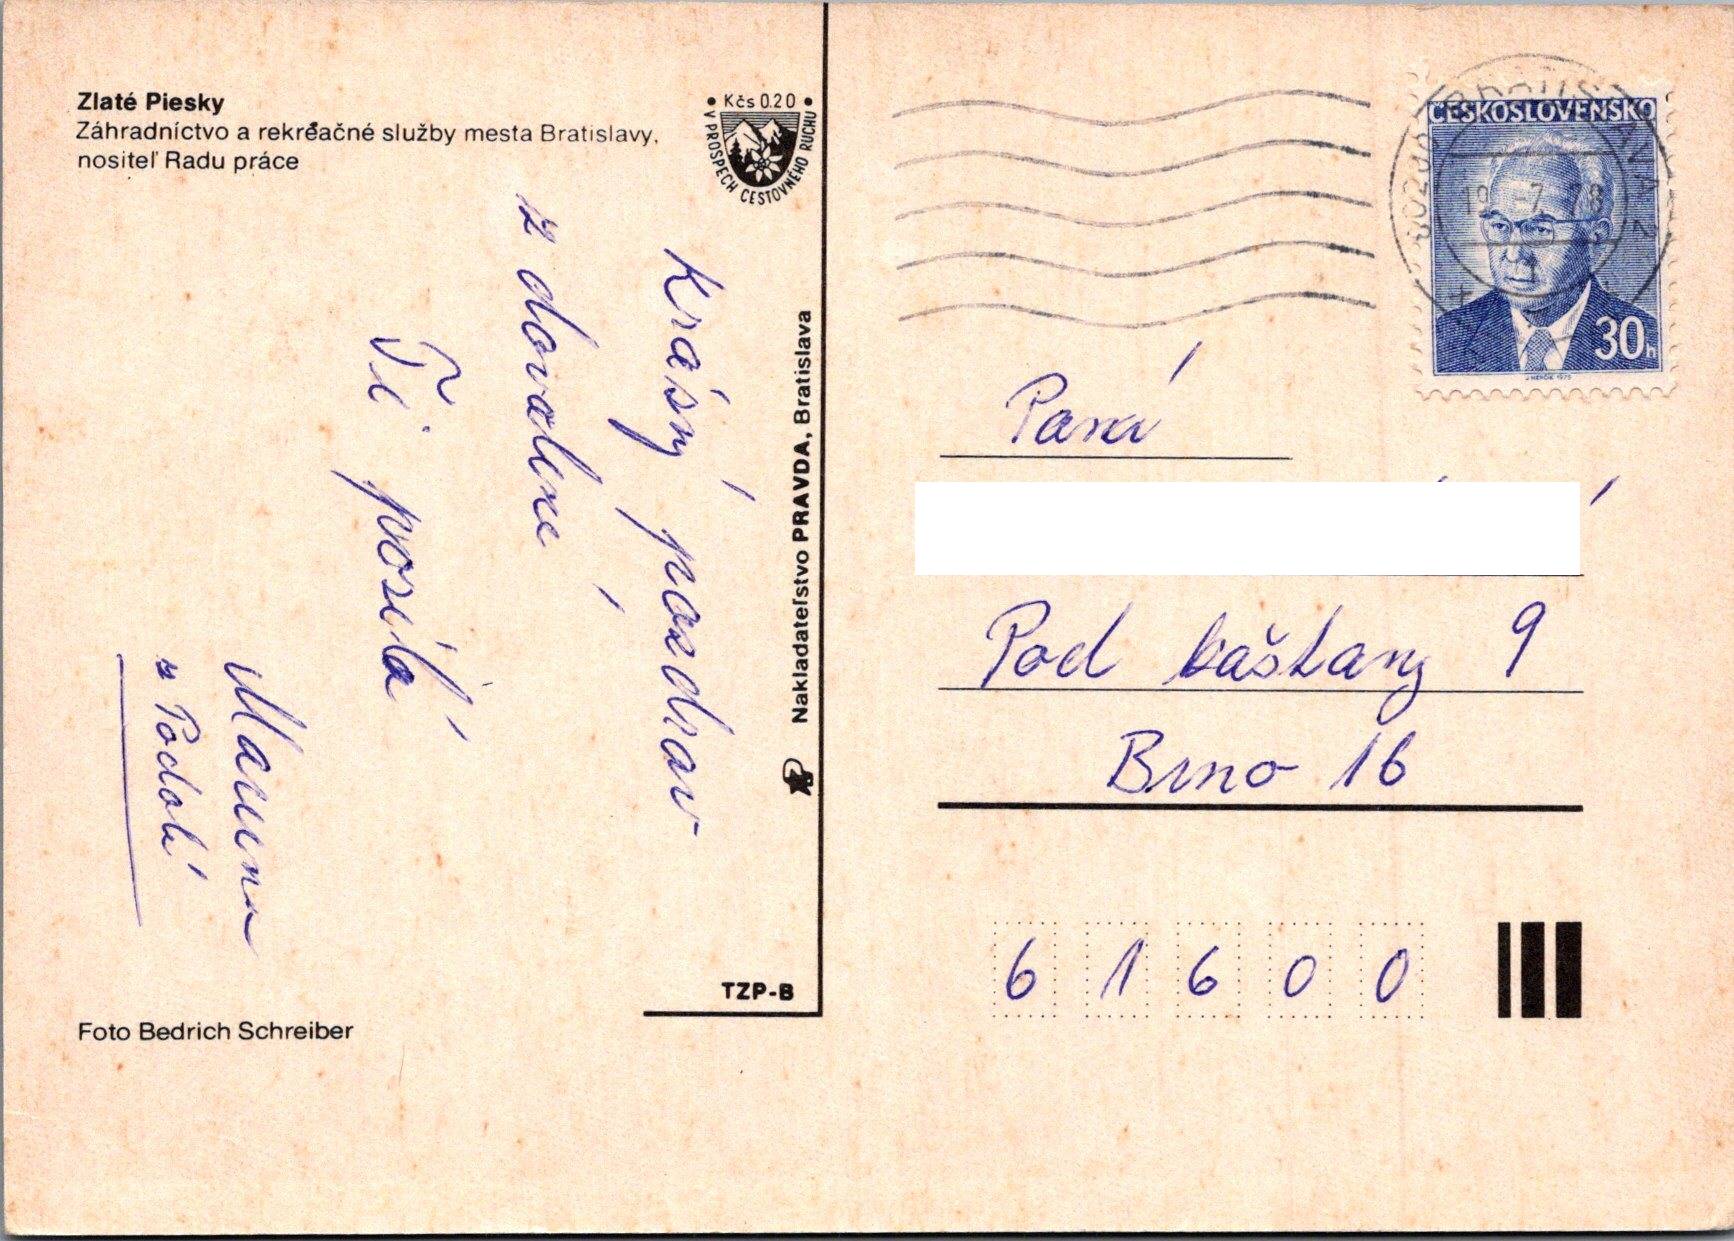 Zlaté Piesky
Záhradníctvo a rekreačné služby mesta Bratislavy,
nositeľ Radu práce
• Kčs 0.20 •
V PROSPECH CESTOVNÉHO RUCHU
Krásný pozdrav
z dovolené
Ti posílá
z Podolí
Nakladateľstvo PRAVDA, Bratislava
TZP-B
Foto Bedrich Schreiber
BRATISLAVA 2
19. -7. 78
ČESKOSLOVENSKO
30h
J. HERČÍK 1975
Paní
Pod kaštany 9
Brno 16
61600